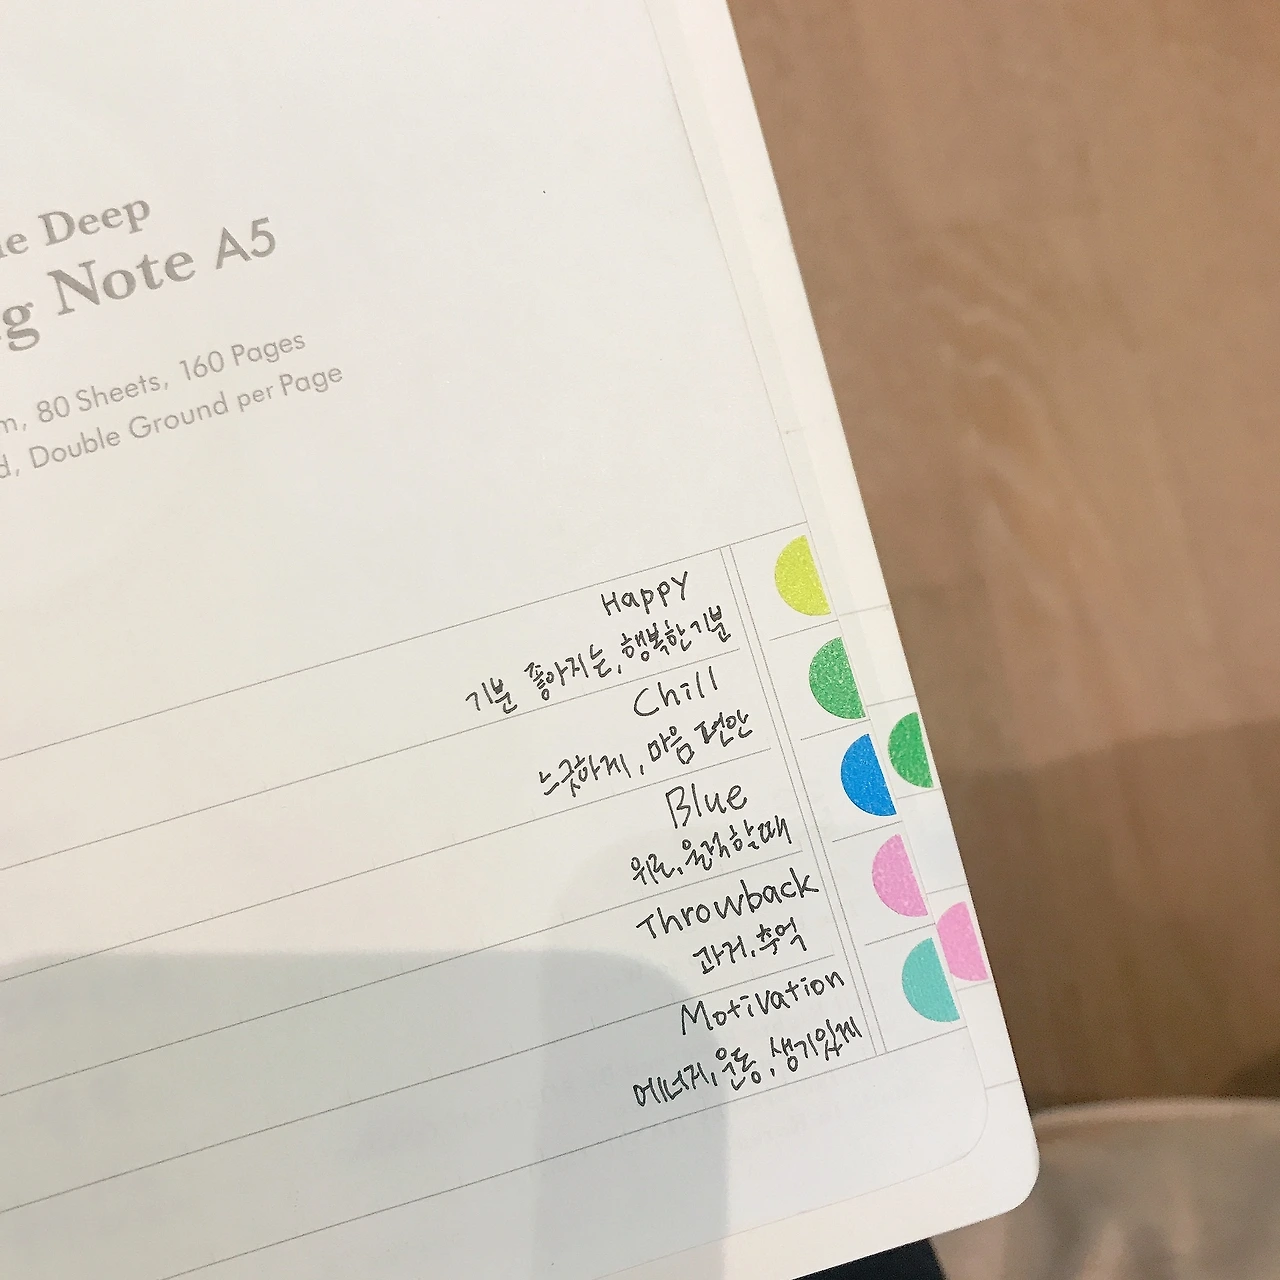 le Deep
g Note A5
m, 80 Sheets, 160 Pages
d, Double Ground per Page
Happy
기분 좋아지는, 행복한 기분
Chill
느긋하게, 마음 편안
Blue
위로, 울적할때
Throwback
과거, 추억
Motivation
에너지, 운동, 생기있게